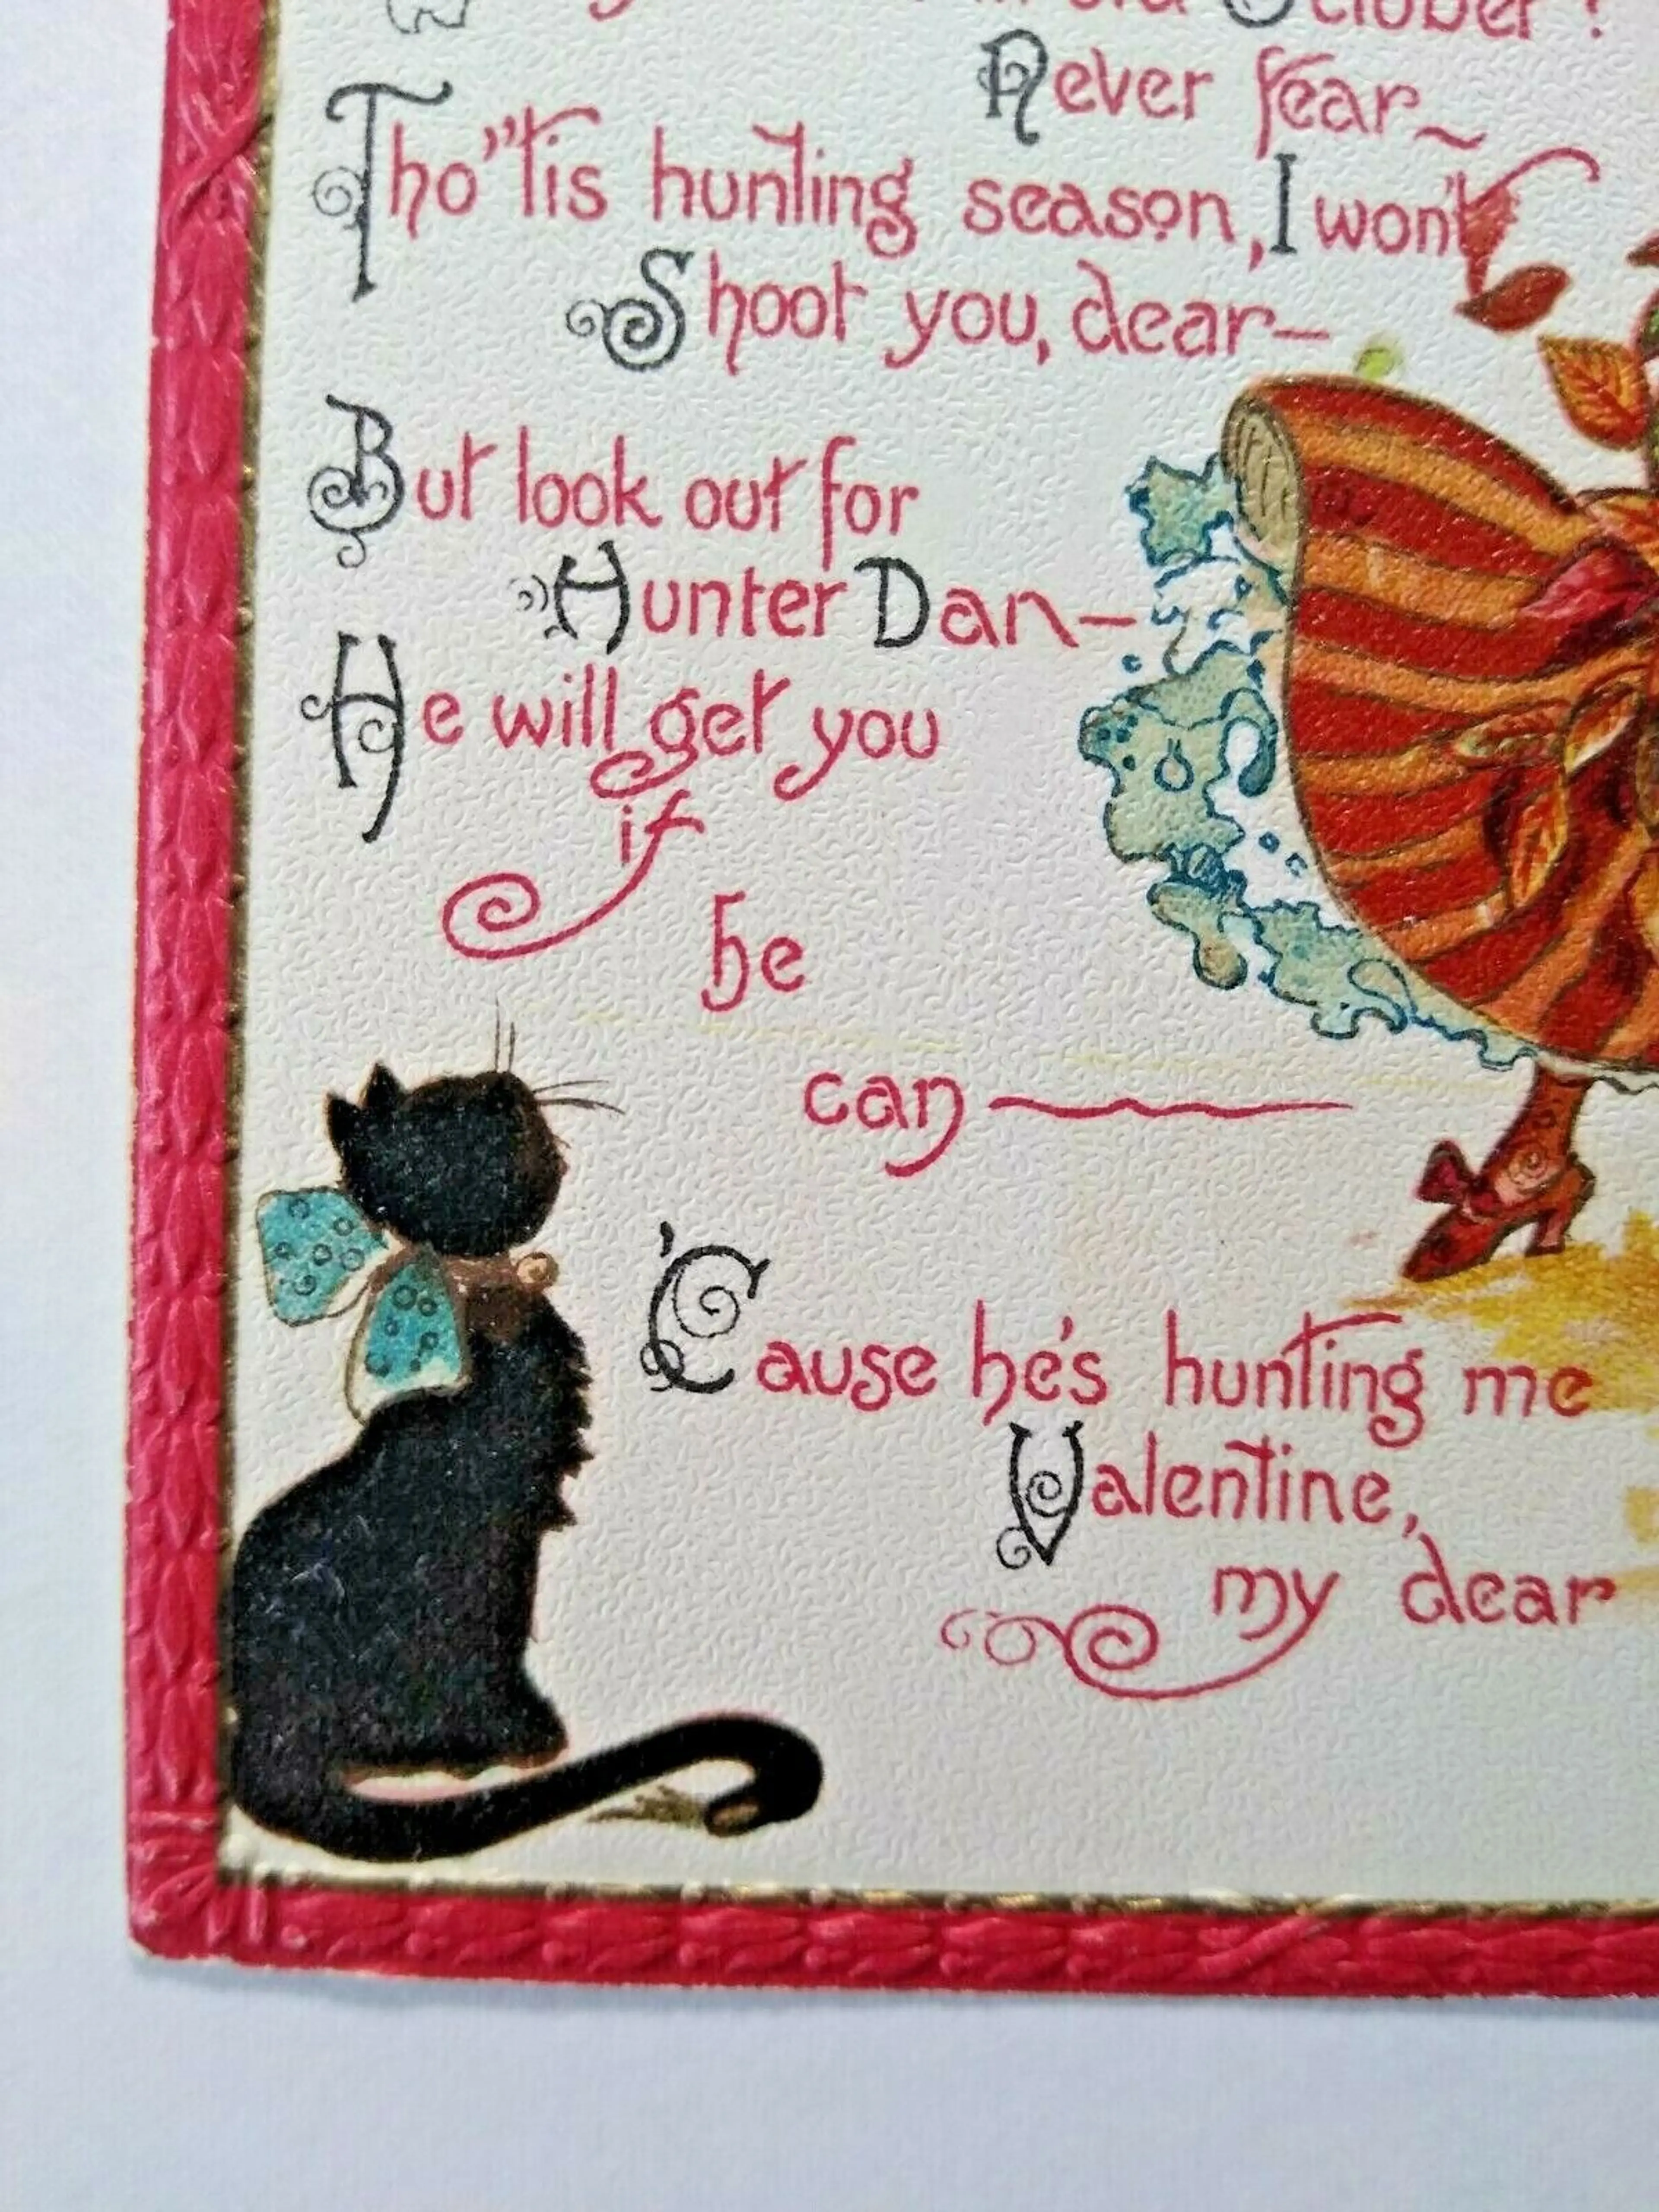 October!
Never fear~
Tho' 'tis hunting season, I won't
Shoot you, dear—
But look out for
Hunter Dan—
He will get you
if
he
can
'Cause he's hunting me
Valentine,
my dear